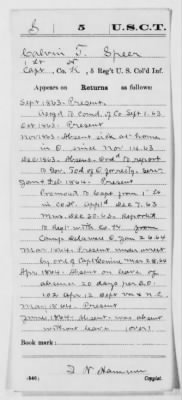 S 5 U.S.C.T.
Calvin T. Speer
1 Lt
Capt., Co. K, 5 Reg't U. S. Col'd Inf.
Appears on Returns as follows:
Sept 1863. Present.
Ass'd to Comd. of Co. Sept 1.63
Oct 1863. Present
Nov 1863. Absent sick at home
in O. since Nov 14.63
Dec 1863. Absent. Ord'd to report
to Gov. Tod of O. for
Jan & Feb 1864. Present
Promoted to Capt from 1" Lt
Dec 7.63
Mus. Dec 30.63. Reported
to Regt with Co. from
Camp Delaware O Jan 26.64
Mar 1864. Present under arrest
by ord of Capt Mar 28.64
Apr 1864. Absent on leave of
absence 20 days per S.O.
102 Apr 12 Dept Va & N.C.
May 1864. Present
June 1864. Absent. Was absent
without leave
Book mark:
(546) Copyist.